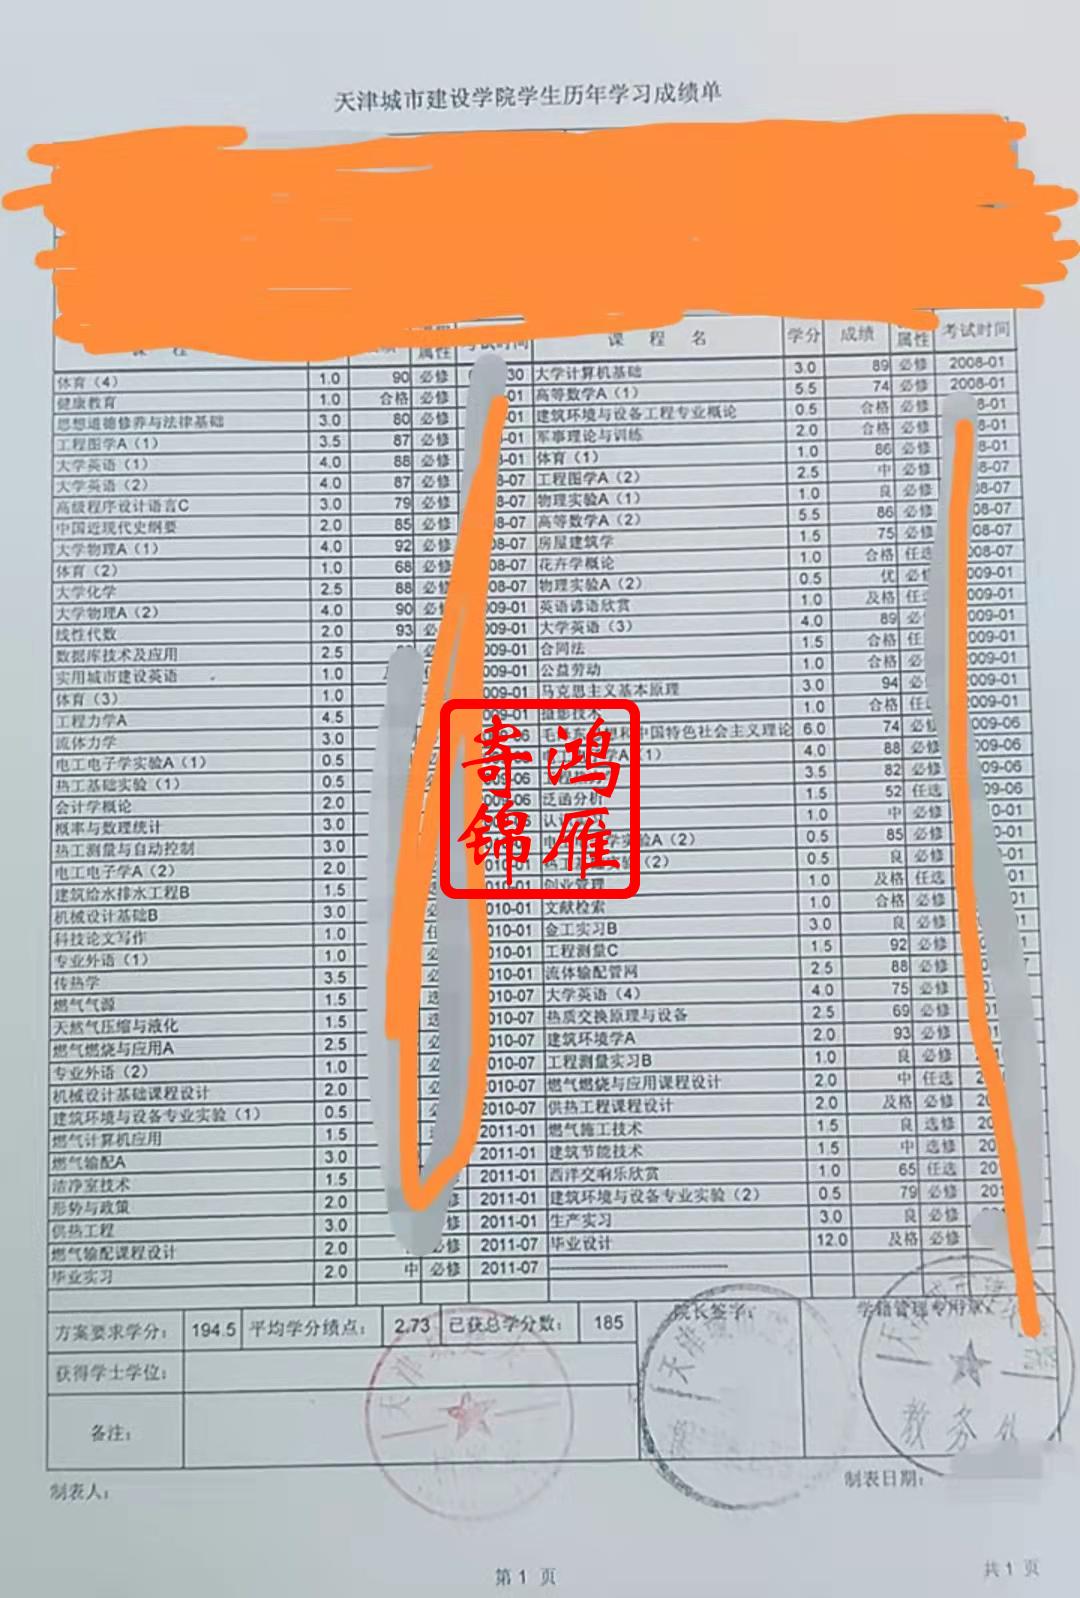 天津城市建设学院学生历年学习成绩单
课 程 属性 考试时间 课 程 名 学分 成绩 属性 考试时间
体育（4） 1.0 90 必修 30 大学计算机基础 3.0 89 必修 2008-01
健康教育 1.0 合格 必修 01 高等数学A（1） 5.5 74 必修 2008-01
思想道德修养与法律基础 3.0 80 必修 -01 建筑环境与设备工程专业概论 0.5 合格 必修 8-01
工程图学A（1） 3.5 87 必修 -01 军事理论与训练 2.0 合格 必修 8-01
大学英语（1） 4.0 88 必修 8-01 体育（1） 1.0 86 必修 8-01
大学英语（2） 4.0 87 必修 8-07 工程图学A（2） 2.5 中 必修 8-07
高级程序设计语言C 3.0 79 必修 8-07 物理实验A（1） 1.0 良 必修 8-07
中国近现代史纲要 2.0 85 必修 08-07 高等数学A（2） 5.5 86 必修 08-07
大学物理A（1） 4.0 92 必修 08-07 房屋建筑学 1.5 75 必修 08-07
体育（2） 1.0 68 必修 08-07 花卉学概论 1.0 合格 任选 008-07
大学化学 2.5 88 必修 08-07 物理实验A（2） 0.5 优 必 009-01
大学物理A（2） 4.0 90 必修 009-01 英语谚语欣赏 1.0 及格 任 009-01
线性代数 2.0 93 必 009-01 大学英语（3） 4.0 89 必 009-01
数据库技术及应用 2.5 009-01 合同法 1.5 合格 任 009-01
实用城市建设英语 1.0 009-01 公益劳动 1.0 合格 必 009-01
体育（3） 1.0 009-01 马克思主义基本原理 3.0 94 必 2009-01
工程力学A 4.5 009-01 摄影技术 1.0 合格 任 2009-01
流体力学 3.0 06 毛泽东思想和中国特色社会主义理论 6.0 74 必修 009-06
电工电子学实验A（1） 0.5 06 电工电子学A（1） 4.0 88 必修 09-06
热工基础实验（1） 0.5 09-06 工程热力学 3.5 82 必修 09-06
会计学概论 2.0 009-06 泛函分析 1.5 52 任选 09-06
概率与数理统计 3.0 认识实习 1.0 中 必修 0-01
热工测量与自动控制 3.0 电工电子学实验A（2） 0.5 85 必修 0-01
电工电子学A（2） 2.0 010-01 热工基础实验（2） 0.5 良 必修 -01
建筑给水排水工程B 1.5 010-01 创业管理 1.0 及格 任选 01
机械设计基础B 3.0 必 010-01 文献检索 1.0 合格 必修 01
科技论文写作 1.0 任 010-01 金工实习B 3.0 良 必修 1
专业外语（1） 1.0 必 010-01 工程测量C 1.5 92 必修
传热学 3.5 必 010-01 流体输配管网 2.5 88 必修 7
燃气气源 1.5 选 010-07 大学英语（4） 4.0 75 必修 201
天然气压缩与液化 1.5 选 010-07 热质交换原理与设备 2.5 69 必修 201
燃气燃烧与应用A 2.5 必 010-07 建筑环境学A 2.0 93 必修 201
专业外语（2） 1.0 必 010-07 工程测量实习B 1.0 良 必修 201
机械设计基础课程设计 2.0 必 2010-07 燃气燃烧与应用课程设计 2.0 中 任选 20
建筑环境与设备专业实验（1） 0.5 必 2010-07 供热工程课程设计 2.0 及格 必修 20
燃气计算机应用 1.5 选 2011-01 燃气施工技术 1.5 良 选修 20
燃气输配A 3.0 必 2011-01 建筑节能技术 1.5 中 选修 20
洁净室技术 1.5 2011-01 西洋交响乐欣赏 1.0 65 任选 20
形势与政策 2.0 修 2011-01 建筑环境与设备专业实验（2） 0.5 79 必修 201
供热工程 3.0 修 2011-01 生产实习 3.0 良 必修
燃气输配课程设计 2.0 必修 2011-07 毕业设计 12.0 及格 必修
毕业实习 2.0 中 必修 2011-07
方案要求学分： 194.5 平均学分绩点： 2.73 已获总学分数： 185 院长签字： 学籍管理专用章：
获得学士学位：
备注：
天津城
天津城市
教务处
制表人： 制表日期：
第 1 页 共 1 页
寄鸿
锦雁